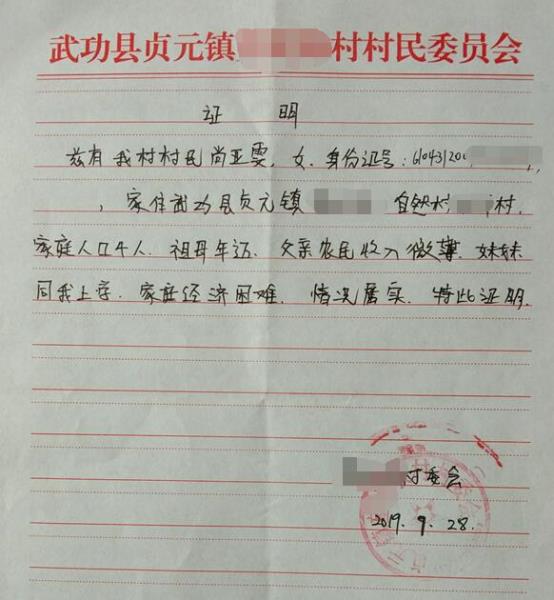 武功县贞元镇 村村民委员会
证 明
兹有我村村民尚亚雯，女，身份证号：61043120
，家住武功县贞元镇 自然村 村，
家庭人口4人，祖母年迈，父亲农民收入微薄，妹妹
同我上学，家庭经济困难，情况属实，特此证明
村委会
2019.9.28.